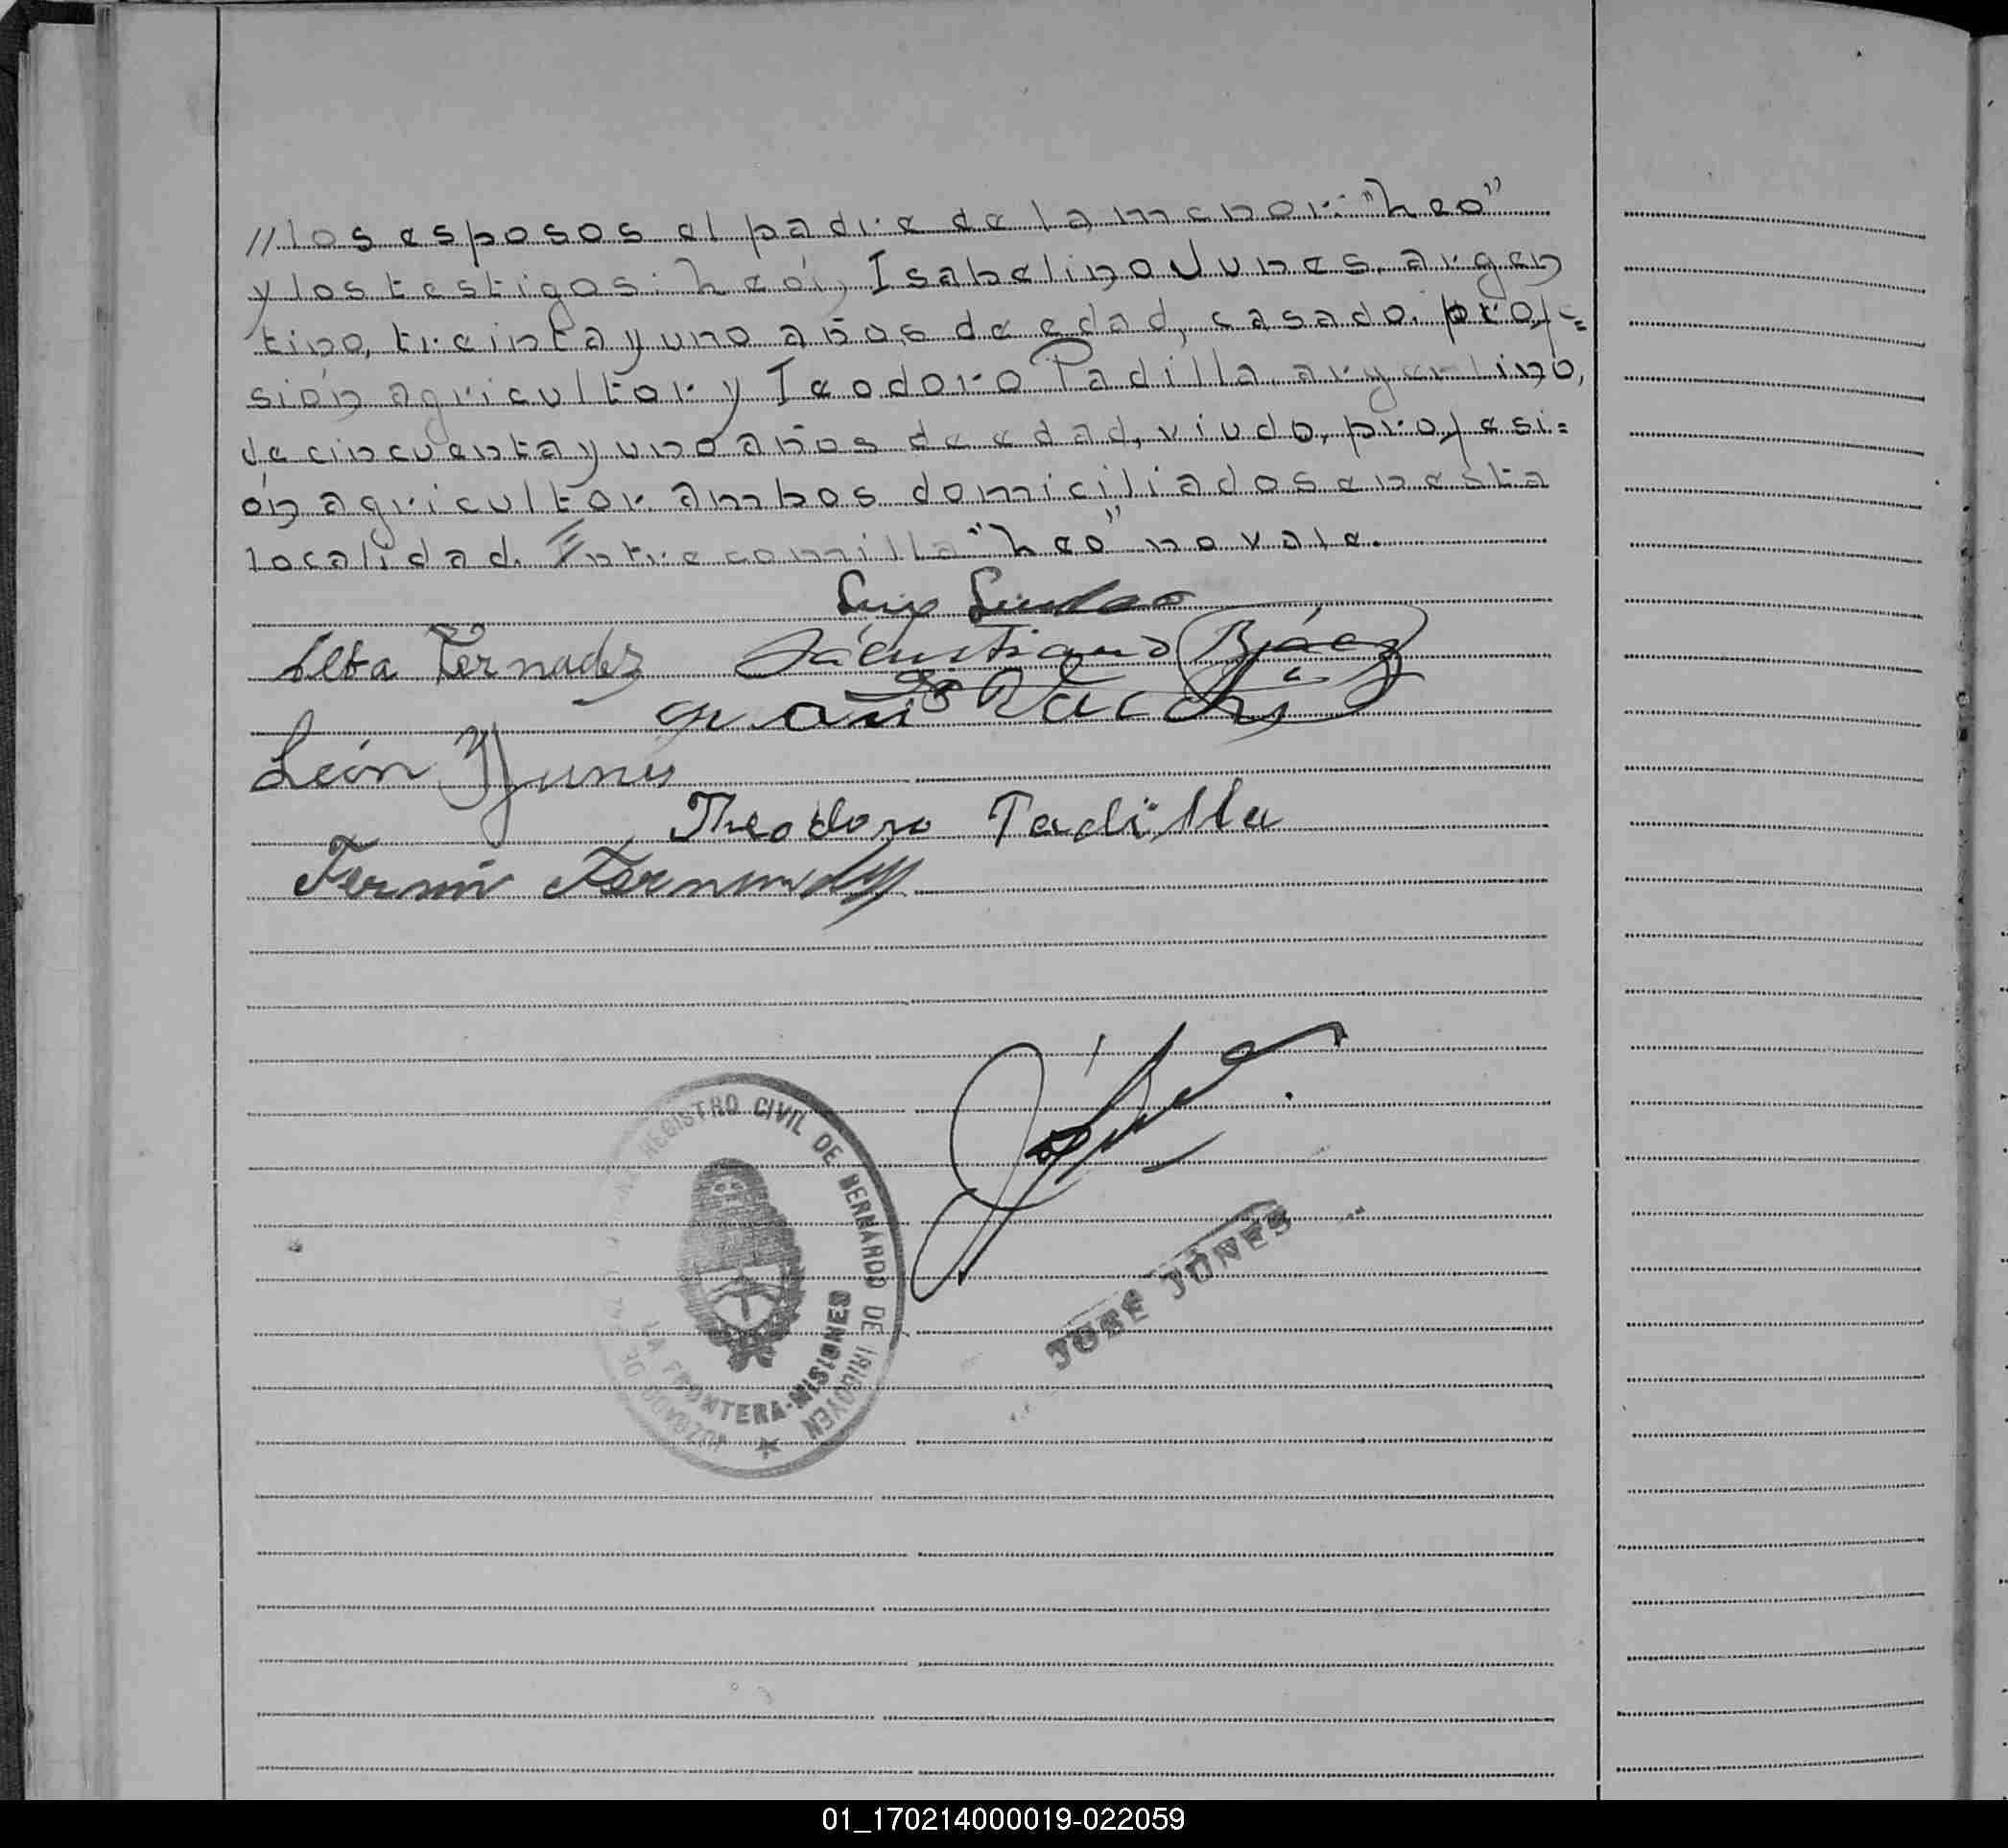 //los esposos el padre de la menor: "Leo"
y los testigos: León Isabelino Junes, argen
tino, treinta y uno años de edad, casado, profe=
sión agricultor y Teodoro Padilla, argentino,
de cincuenta y uno años de edad, viudo, profesi=
ón agricultor ambos domiciliados en esta
localidad. Entrecomilla "Leo" no vale.
Luis
Elba Fernadez
Juan
León Y Junes
Theodoro Padilla
Fermin Fernandez
REGISTRO CIVIL DE BERNARDO DE IRIGOYEN
JUZGADO DE
LA FRONTERA-MISIONES
JOSÉ JONES
01_170214000019-022059